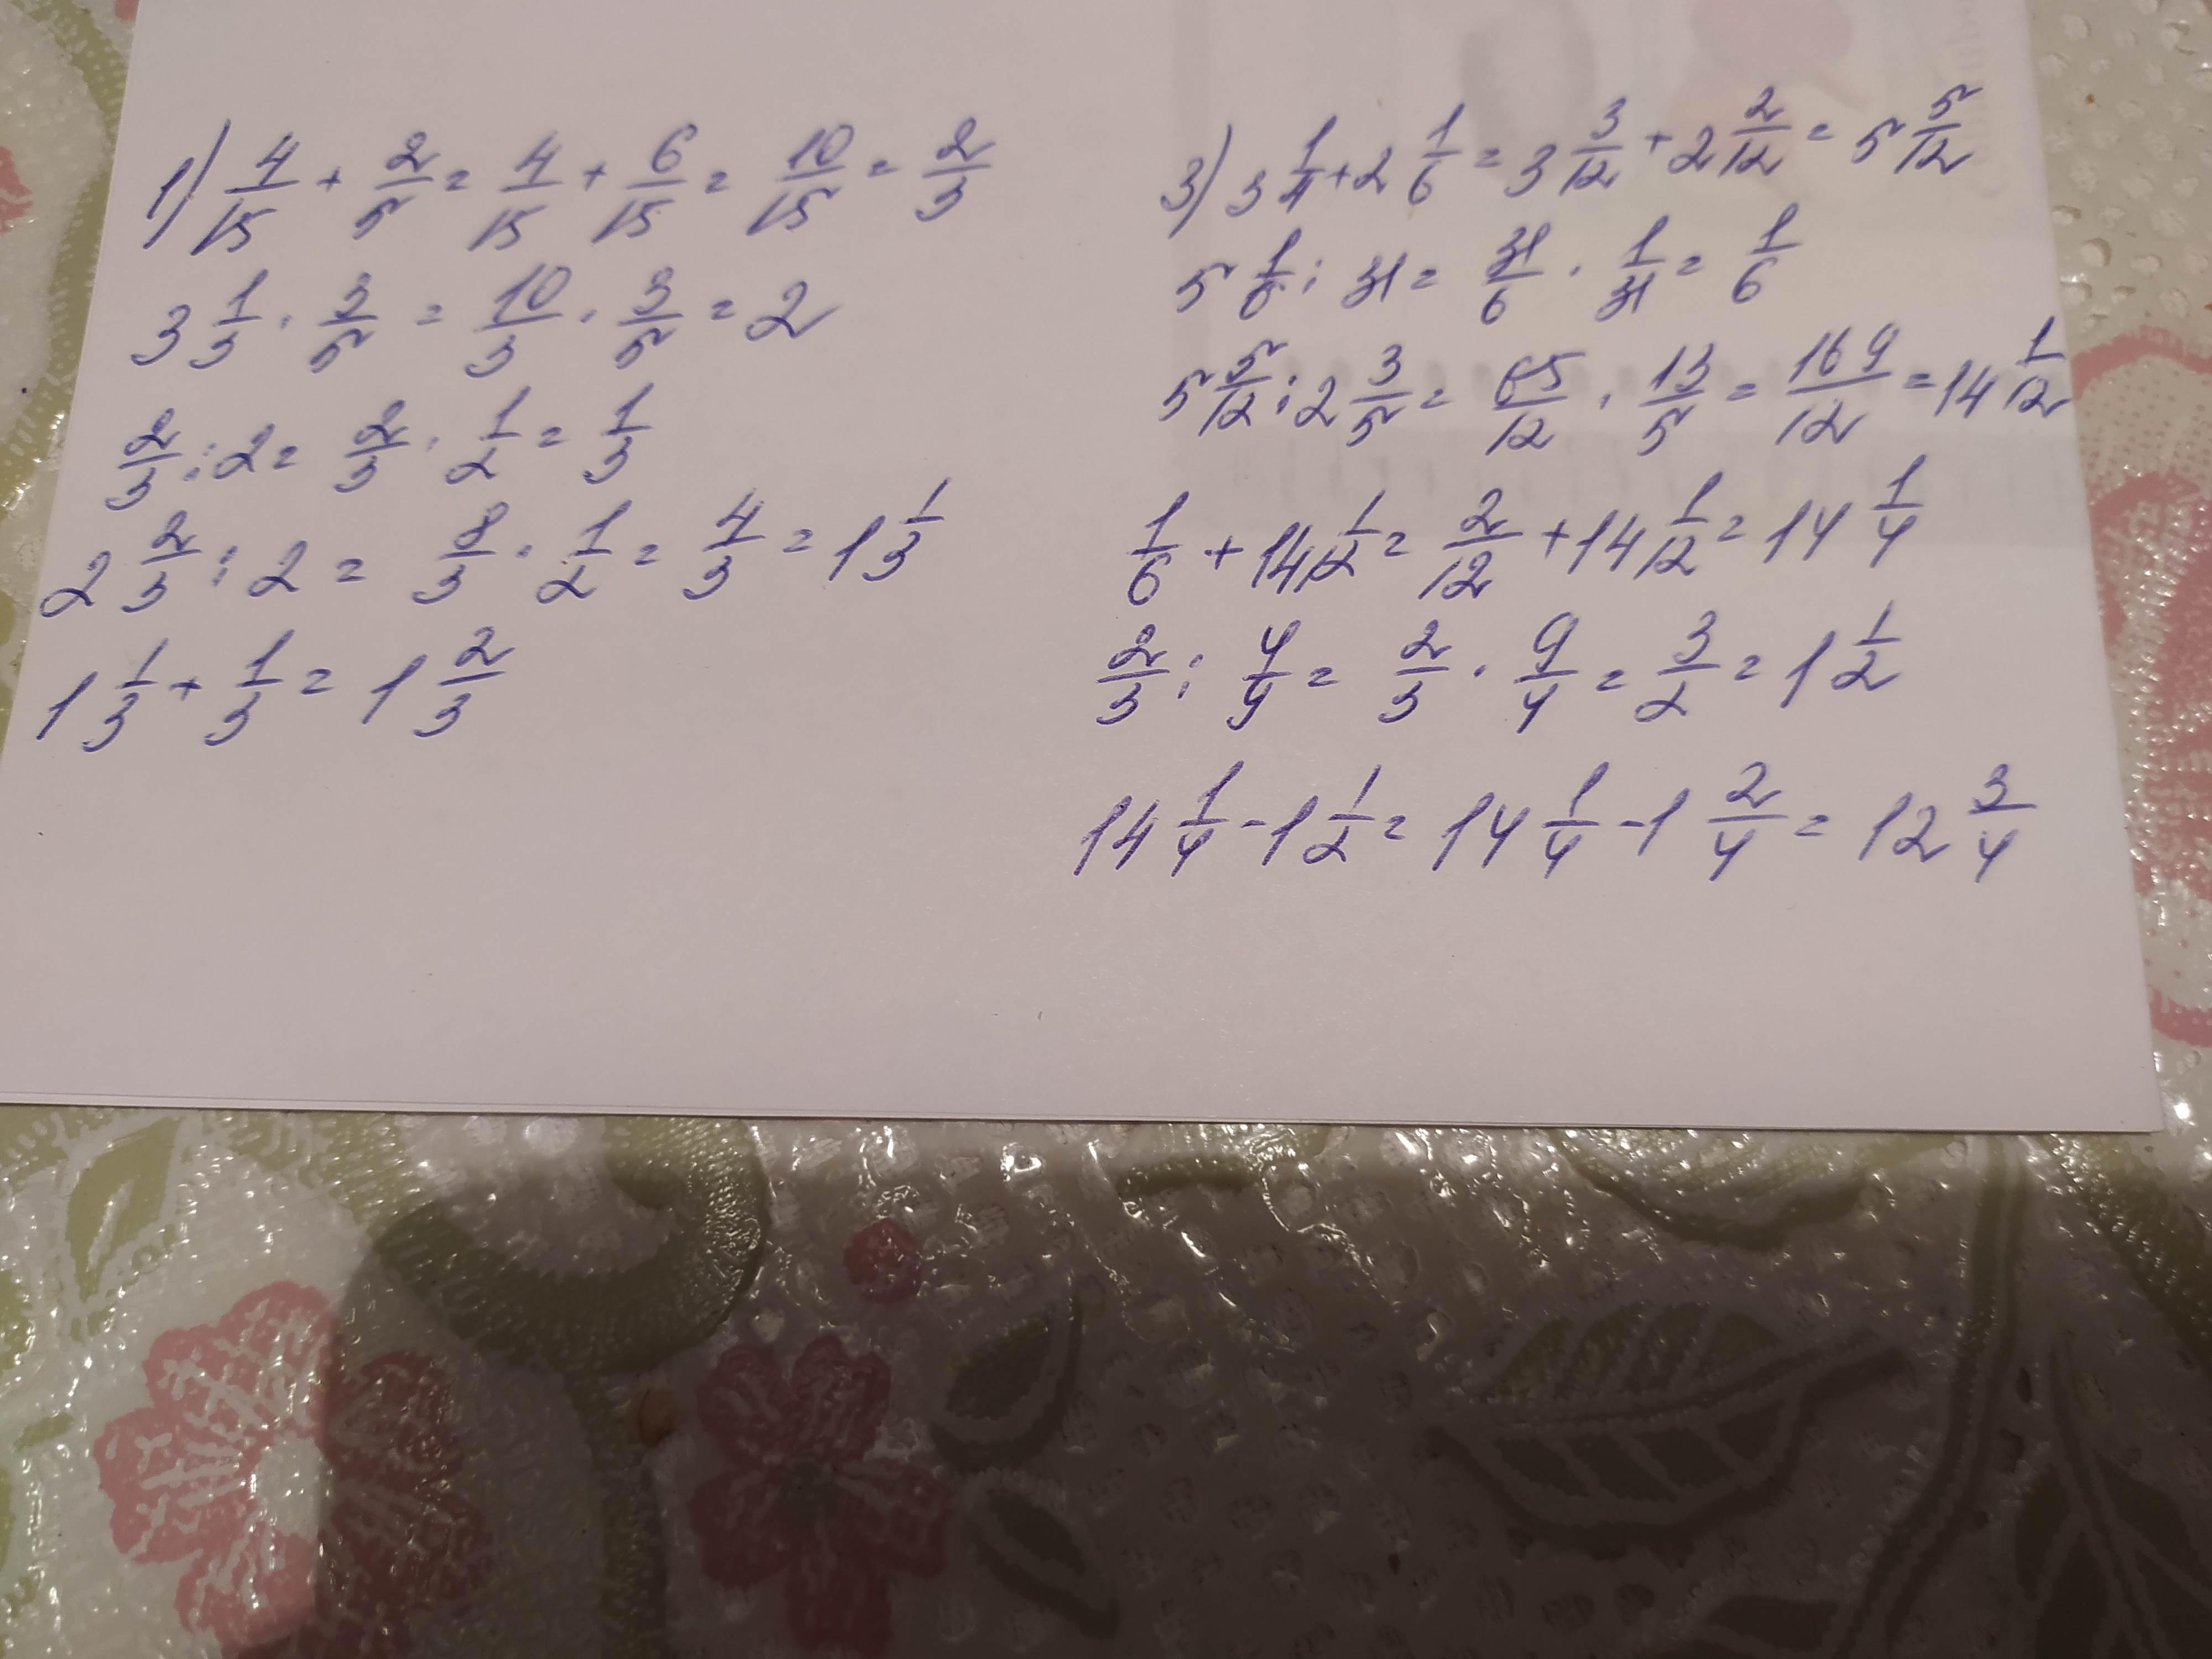 1) 4/15 + 2/5 = 4/15 + 6/15 = 10/15 = 2/3
3 1/3 · 3/5 = 10/3 · 3/5 = 2
2/3 : 2 = 2/3 · 1/2 = 1/3
2 2/3 : 2 = 8/3 · 1/2 = 4/3 = 1 1/3
1 1/3 + 1/3 = 1 2/3
3) 3 1/4 + 2 1/6 = 3 3/12 + 2 2/12 = 5 5/12
5 1/6 : 31 = 31/6 · 1/31 = 1/6
5 5/12 : 2 3/5 = 65/12 · 13/5 = 169/12 = 14 1/12
1/6 + 14 1/12 = 2/12 + 14 1/12 = 14 1/4
2/3 : 4/9 = 2/3 · 9/4 = 3/2 = 1 1/2
14 1/4 - 1 1/2 = 14 1/4 - 1 2/4 = 12 3/4